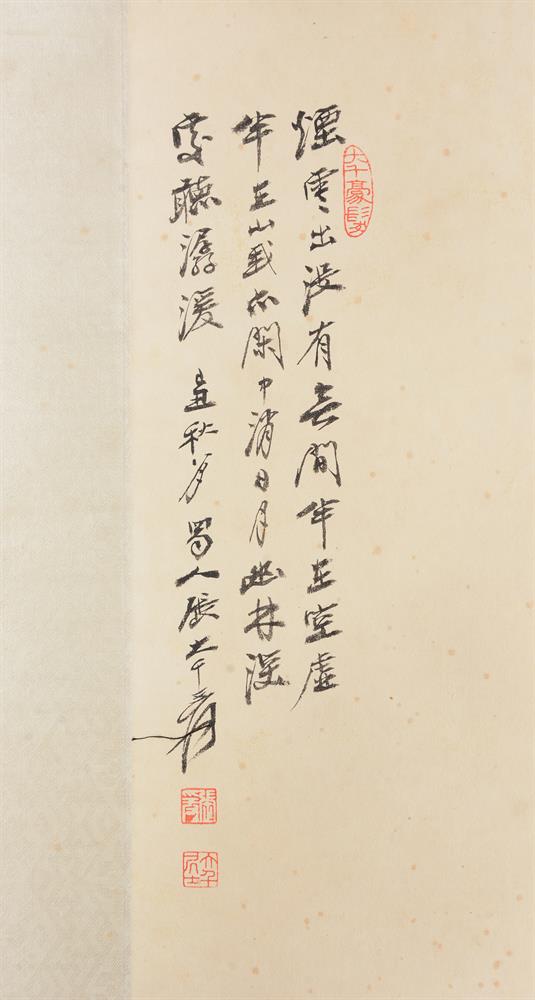 煙雲出沒有無間半在空虛
半在山我亦閑中消日月幽林深
處聽潺湲 丑秋月 蜀人張大千爰
大千豪髮
張爰
大千居士